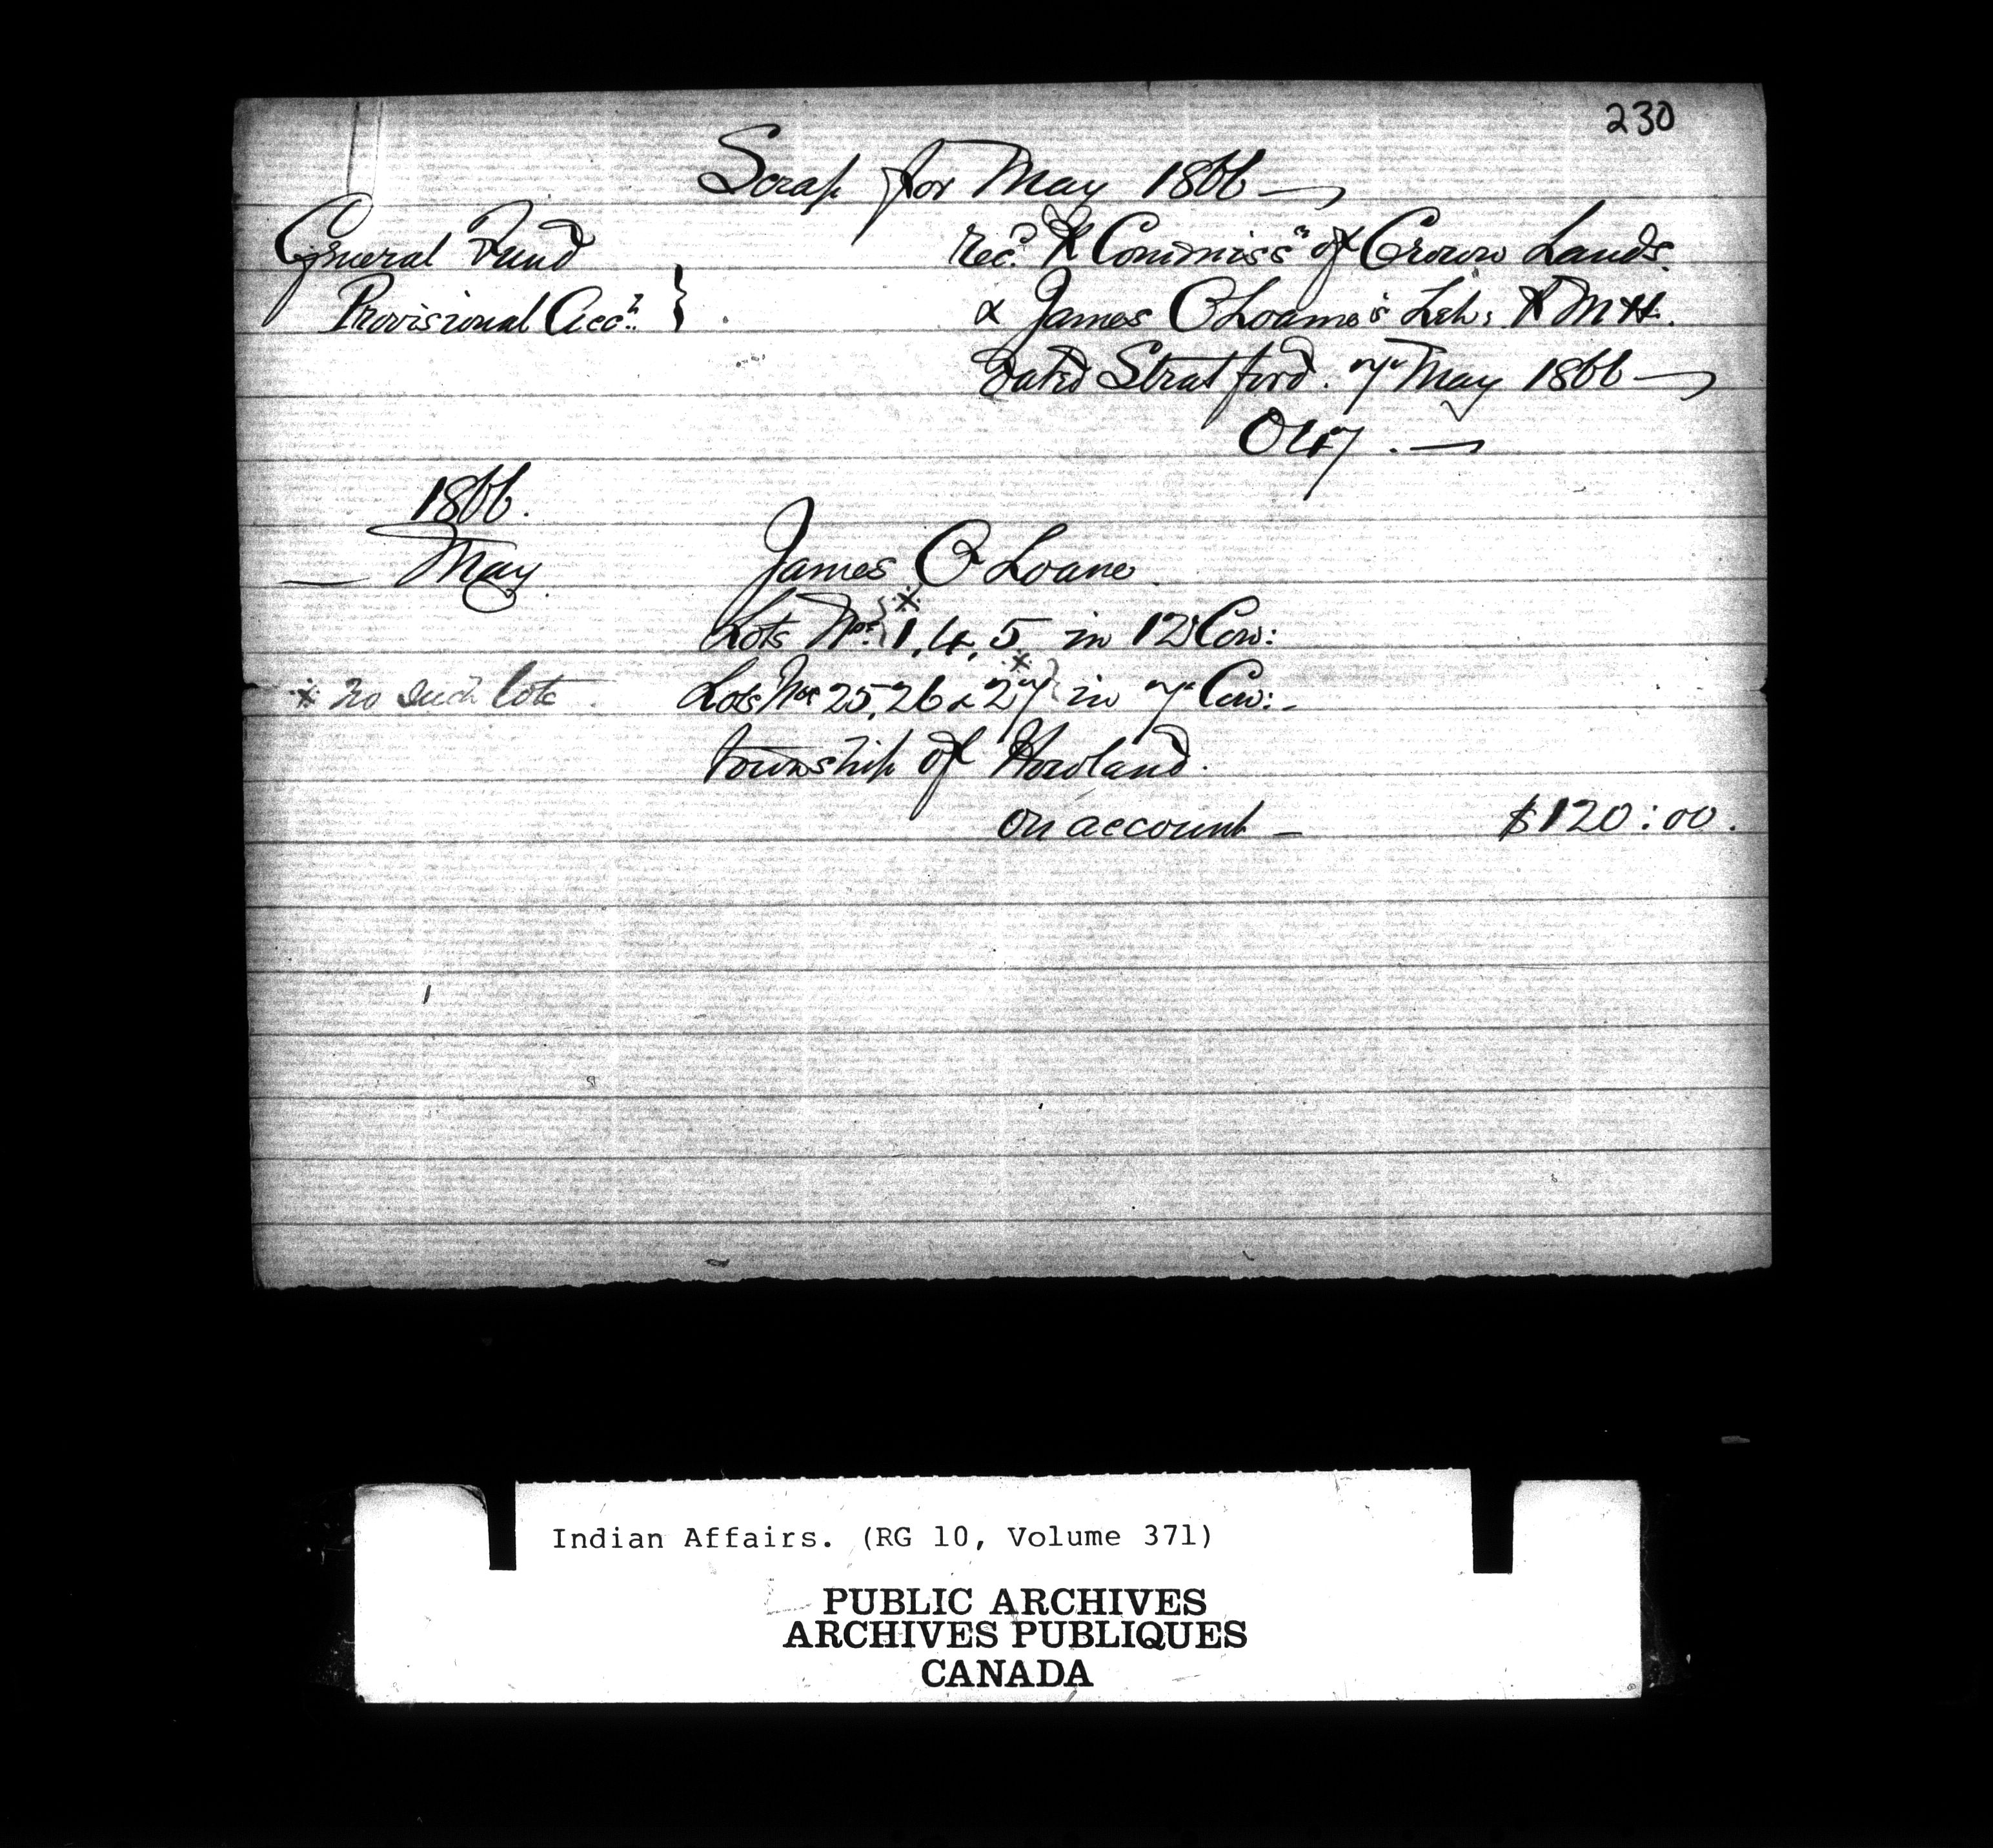 230
Scrap for May 1866
General Fund
Provisional Acct. }
Rec. Commissr of Crown Lands
& James O Loane's Let:
dated Stratford. 7 May 1866
O 47.
1866.
May
James O Loane
Lots Nos 1, 4, 5 in 12 Con:
x no such lots
Lots Nos 25, 26 & 27 in 7 Con:
township of Howland.
on account - $120:00.
Indian Affairs. (RG 10, Volume 371)
PUBLIC ARCHIVES
ARCHIVES PUBLIQUES
CANADA